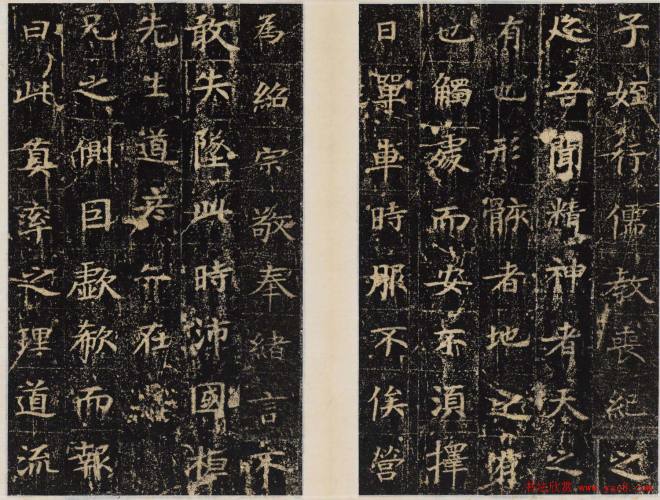 子姪行儒教喪紀之
迹吾聞精神者天之
有也形骸者地之有
也觸處而安不須擇
日單車時服不俟營
為紹宗敬奉緒言不
敢失墜此時沛國桓
先生道彦亦在
兄之側因歔欷而報
曰此真率之理道流
书法欣赏 www.yac8.com